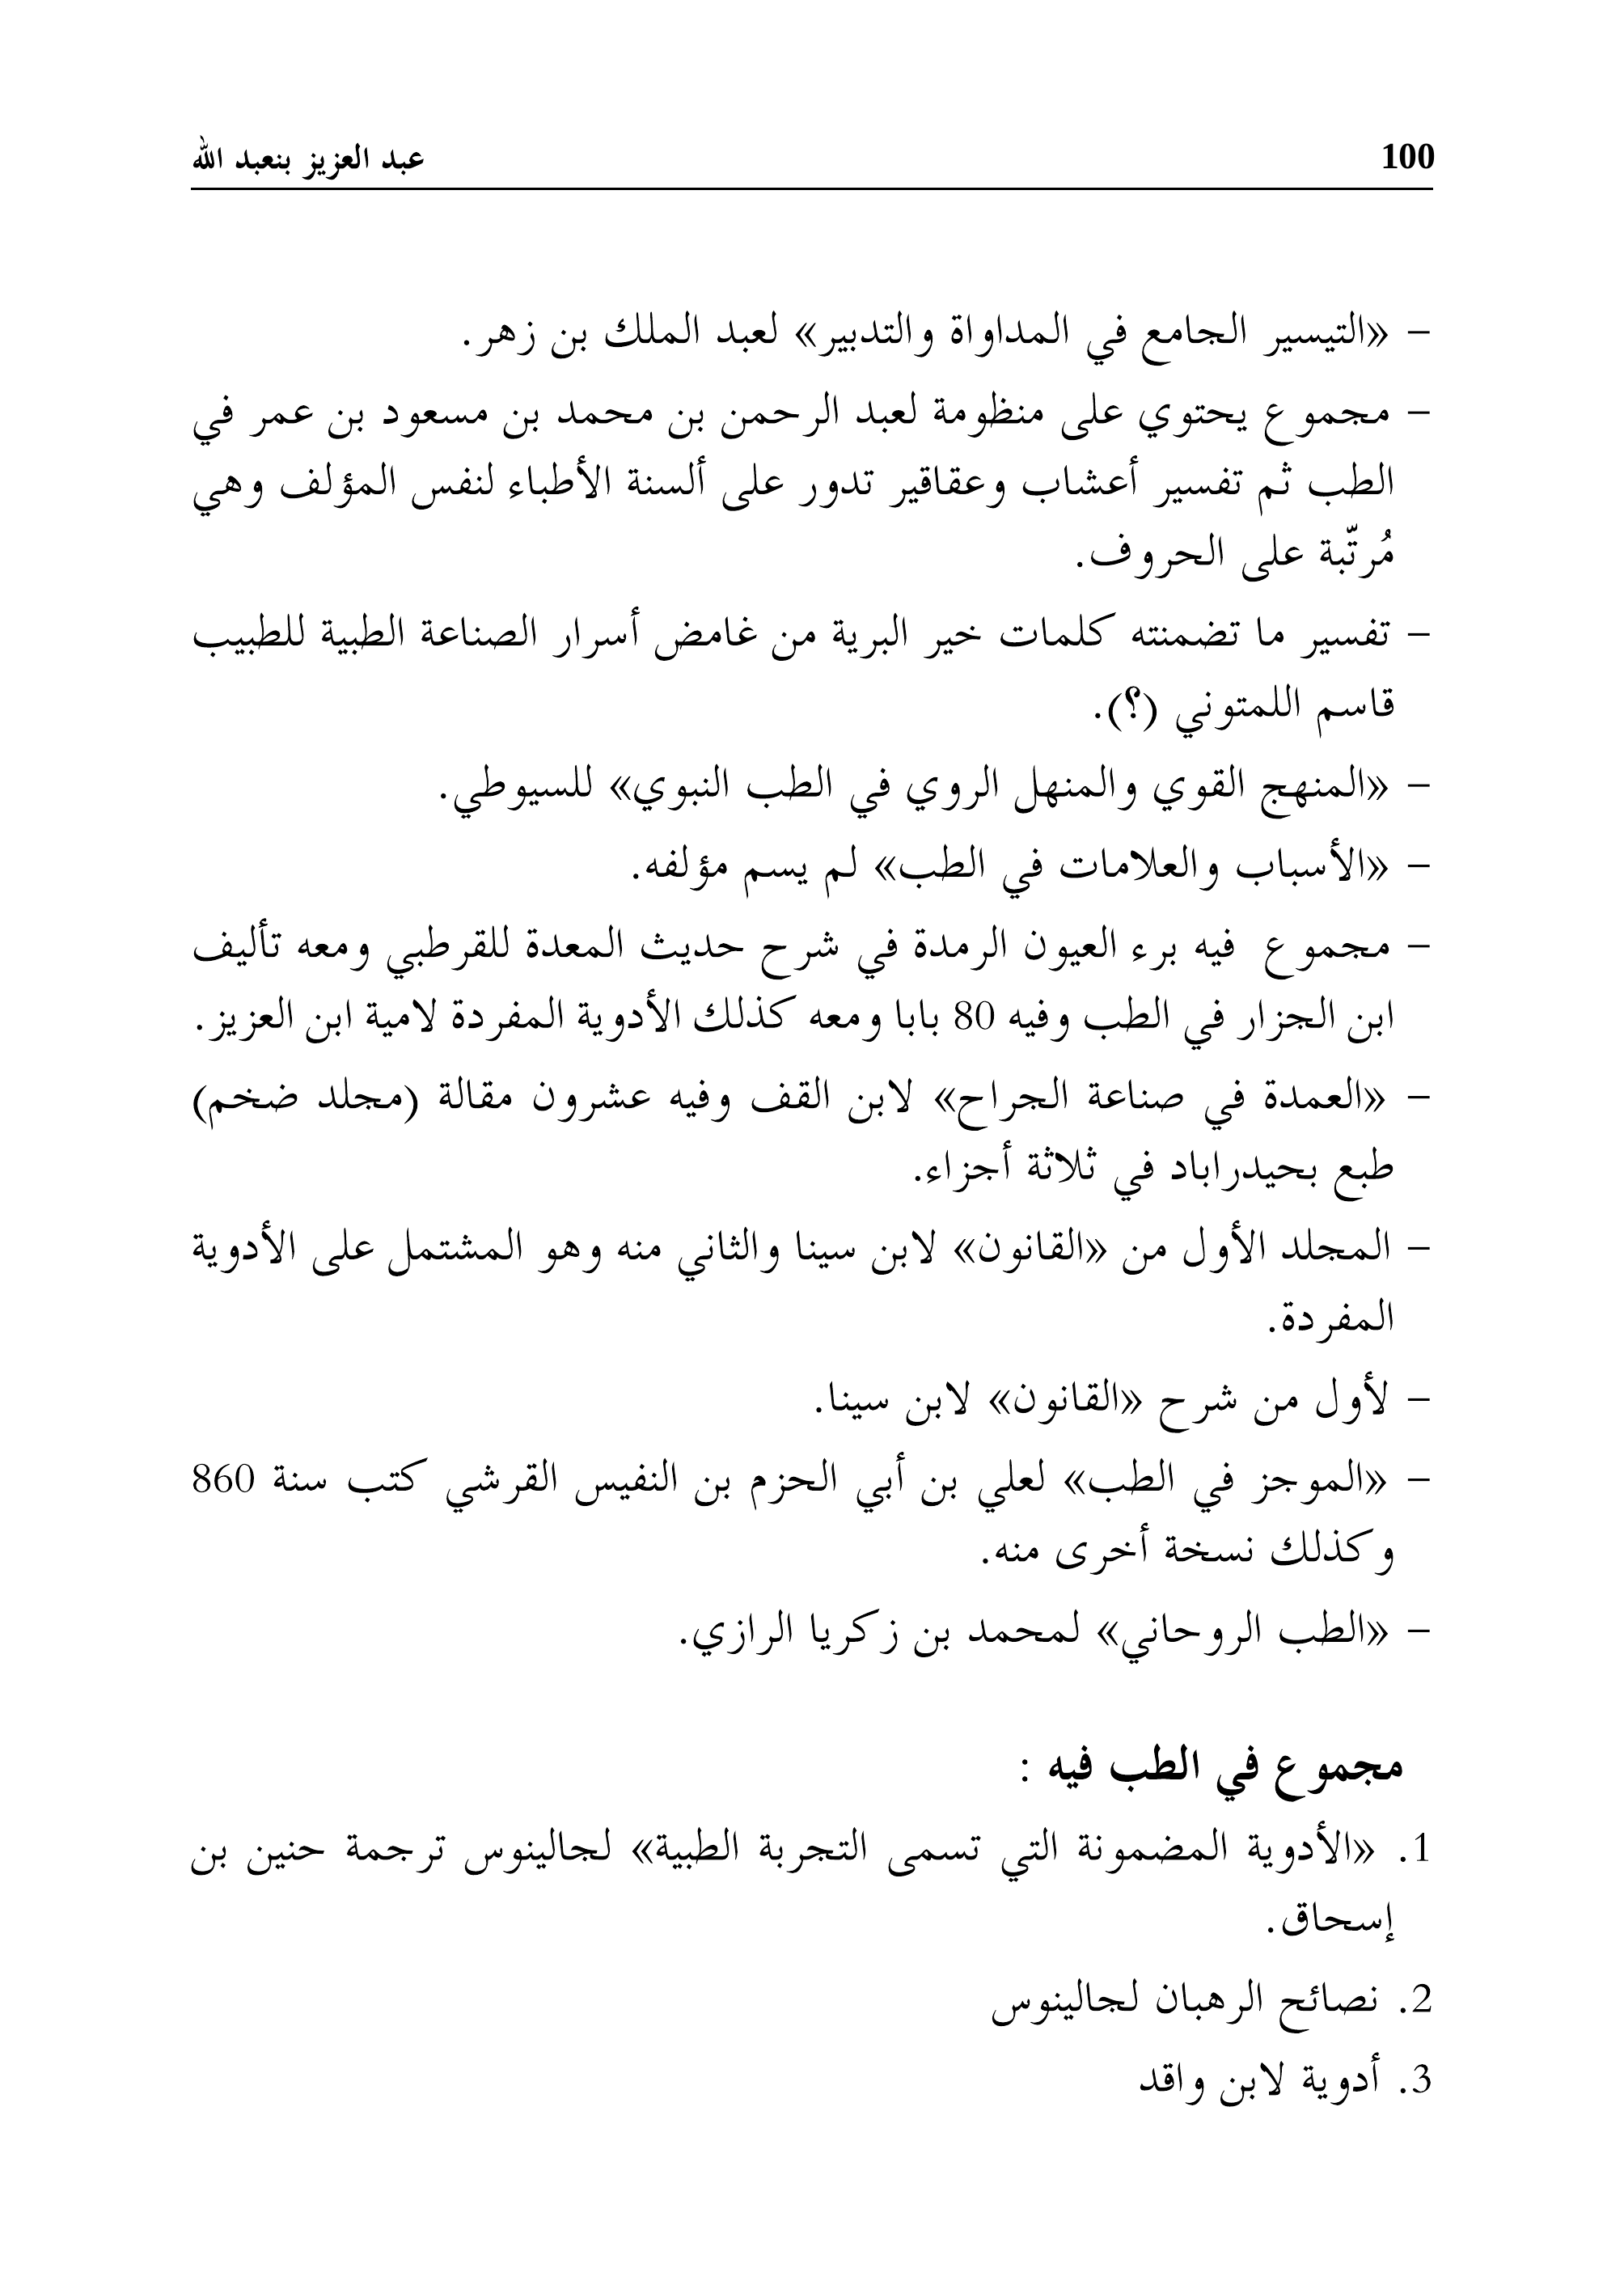 100 عبد العزيز بنعبد الله
– «التيسير الجامع في المداواة والتدبير» لعبد الملك بن زهر.
– مجموع يحتوي على منظومة لعبد الرحمن بن محمد بن مسعود بن عمر في
الطب ثم تفسير أعشاب وعقاقير تدور على ألسنة الأطباء لنفس المؤلف وهي
مُرتّبة على الحروف.
– تفسير ما تضمنته كلمات خير البرية من غامض أسرار الصناعة الطبية للطبيب
قاسم اللمتوني (؟).
– «المنهج القوي والمنهل الروي في الطب النبوي» للسيوطي.
– «الأسباب والعلامات في الطب» لم يسم مؤلفه.
– مجموع فيه برء العيون الرمدة في شرح حديث المعدة للقرطبي ومعه تأليف
ابن الجزار في الطب وفيه 80 بابا ومعه كذلك الأدوية المفردة لامية ابن العزيز.
– «العمدة في صناعة الجراح» لابن القف وفيه عشرون مقالة (مجلد ضخم)
طبع بحيدراباد في ثلاثة أجزاء.
– المجلد الأول من «القانون» لابن سينا والثاني منه وهو المشتمل على الأدوية
المفردة.
– لأول من شرح «القانون» لابن سينا.
– «الموجز في الطب» لعلي بن أبي الحزم بن النفيس القرشي كتب سنة 860
وكذلك نسخة أخرى منه.
– «الطب الروحاني» لمحمد بن زكريا الرازي.
مجموع في الطب فيه :
1. «الأدوية المضمونة التي تسمى التجربة الطبية» لجالينوس ترجمة حنين بن
إسحاق.
2. نصائح الرهبان لجالينوس
3. أدوية لابن واقد